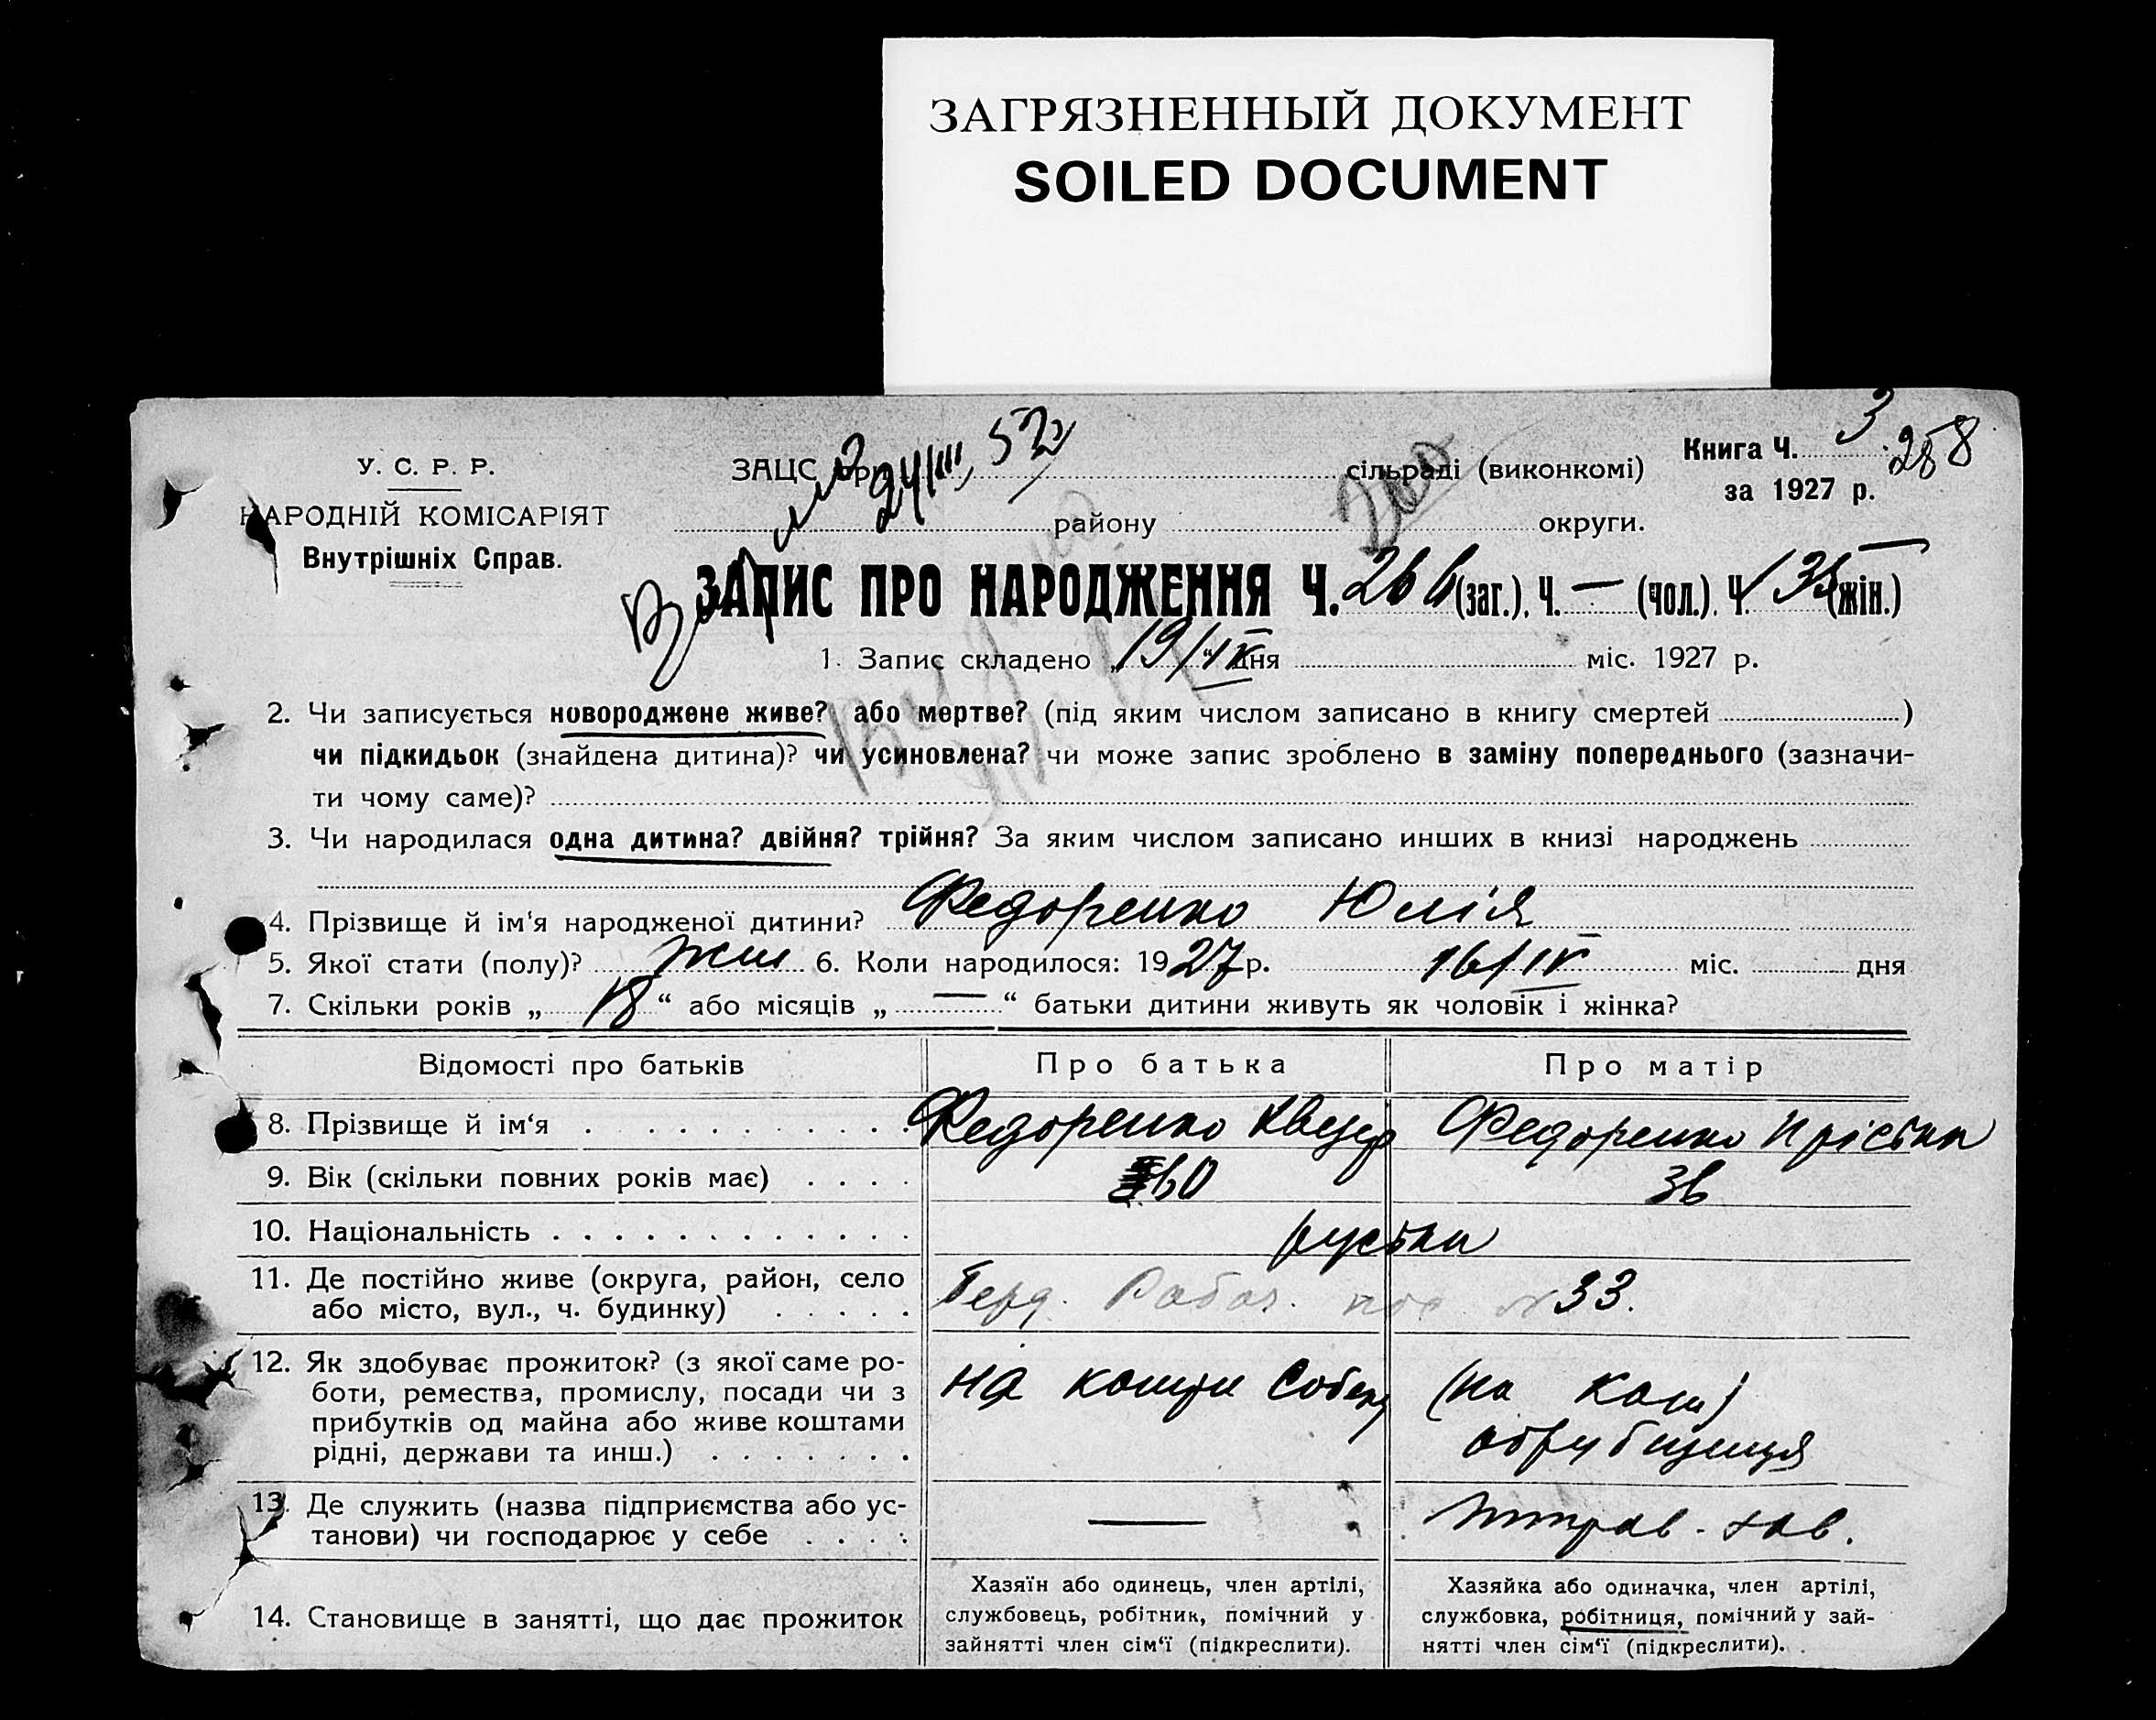 ЗАГРЯЗНЕННЫЙ ДОКУМЕНТ
SOILED DOCUMENT
Книга Ч. 3 258
за 1927 р.
У. С. Р. Р.
НАРОДНІЙ КОМІСАРІЯТ
Внутрішніх Справ.
ЗАЦС при сільраді (виконкомі)
24/III, 52
району округи.
ЗАПИС ПРО НАРОДЖЕННЯ Ч. 266 (заг.), Ч. — (чол.), Ч. 135 (жін.)
1. Запис складено „ 19/IV “ дня міс. 1927 р.
2. Чи записується новороджене живе? або мертве? (під яким числом записано в книгу смертей )
чи підкидьок (знайдена дитина)? чи усиновлена? чи може запис зроблено в заміну попереднього (зазначи-
ти чому саме)?
3. Чи народилася одна дитина? двійня? трійня? За яким числом записано инших в книзі народжень
4. Прізвище й ім‘я народженої дитини? Федоренко Юлія
5. Якої стати (полу)? жін 6. Коли народилося: 1927 р. 16/IV міс. дня
7. Скільки років „ 18 “ або місяців „ — “ батьки дитини живуть як чоловік і жінка?
Відомості про батьків Про батька Про матір
8. Прізвище й ім‘я Федоренко Федоренко
9. Вік (скільки повних років має) 60 36
10. Національність руська
11. Де постійно живе (округа, район, село
або місто, вул., ч. будинку) Берд. Рабоч. N 33.
12. Як здобуває прожиток? (з якої саме ро-
боти, ремества, промислу, посади чи з
прибутків од майна або живе коштами
рідні, держави та инш.) на кошти (на кош)
13. Де служить (назва підприємства або ус-
танови) чи господарює у себе —
14. Становище в занятті, що дає прожиток
Хазяїн або одинець, член артілі,
службовець, робітник, помічний у
зайнятті член сім‘ї (підкреслити).
Хазяйка або одиначка, член артілі,
службовка, робітниця, помічний у зай-
нятті член сім‘ї (підкреслити).